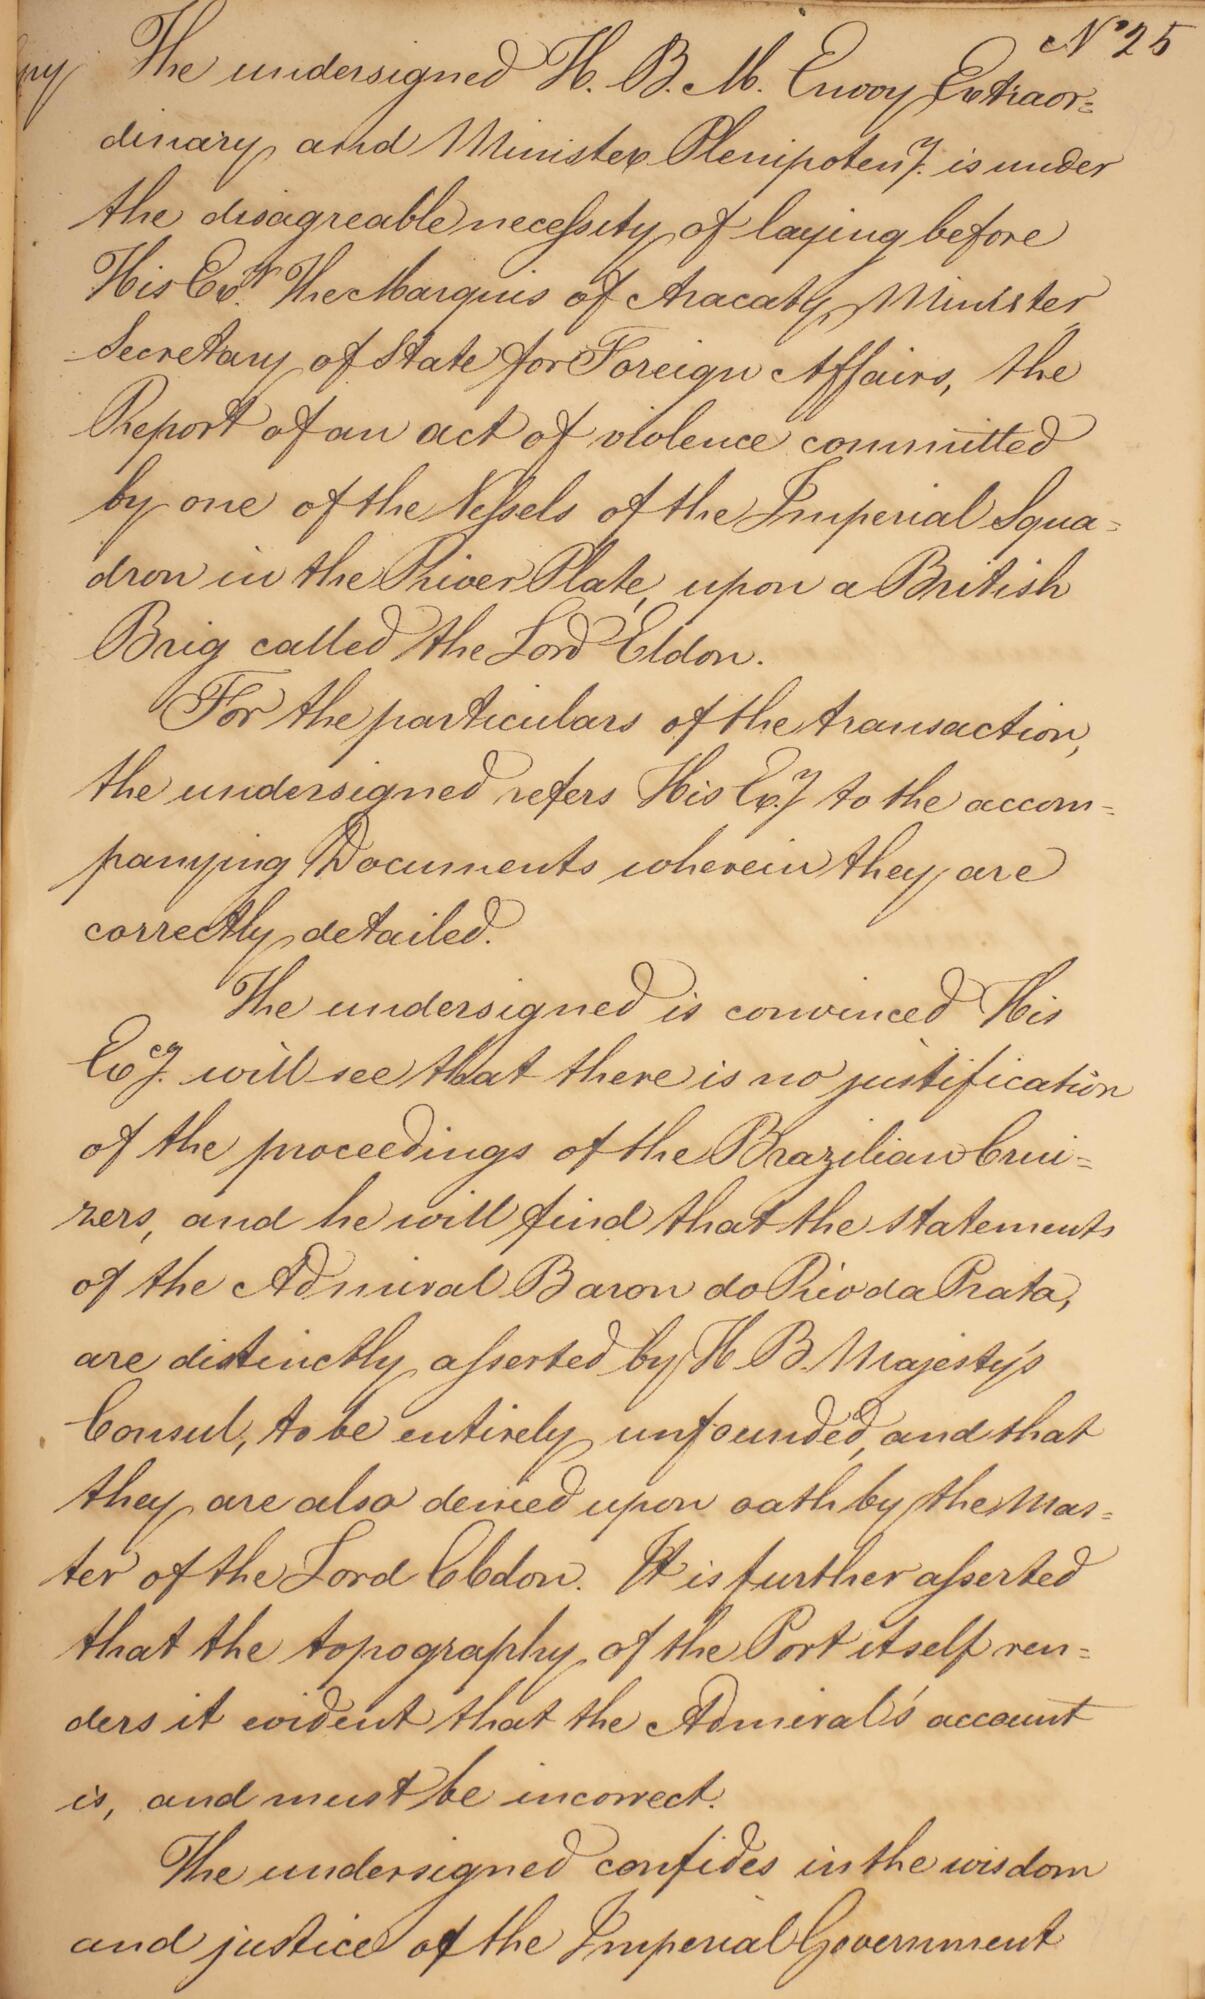 Nº 25
The undersigned H. B. M. Envoy Extraor=
dinary and Minister Plenipoteny. is under
the disagreable necessity of laying before
His Ex. The Marquis of Aracaty, Minister
Secretary of State for Foreign Affairs, the
Report of an act of violence committed
by one of the Vessels of the Imperial Squa=
dron in the River Plate, upon a British
Brig called the Lord Eldon.
For the particulars of the transaction,
the undersigned refers His Ex.y to the accom=
panying Documents wherein they are
correctly detailed.
The undersigned is convinced His
Excy. will see that there is no justification
of the proceedings of the Brazilian Crui=
zers, and he will find that the statements
of the Admiral Baron do Rio da Prata,
are distinctly asserted by H B. Majesty's
Consul, to be entirely unfounded, and that
they are also denied upon oath by the Mas=
ter of the Lord Eldon. It is further asserted
that the topography of the Port itself ren=
ders it evident that the Admiral's account
is, and must be incorrect.
The undersigned confides in the wisdom
and justice of the Imperial Government